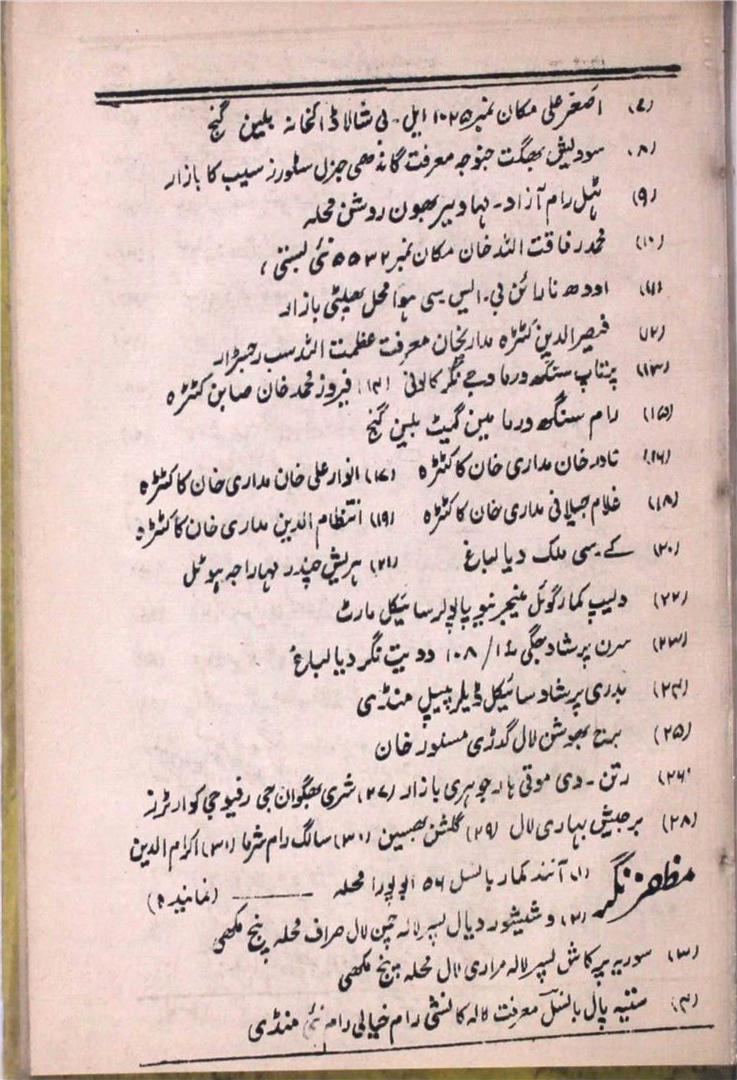 (۷) اصغر علی مکان نمبر ۱۰۲۵ ایل۔ بی شالا ڈاکخانہ بلین گنج
(۸) سودیش بھگت جنوجہ معرفت گاندھی جزل سٹورز سیب کا بازار
(۹) ہٹل رام آزاد۔ مہادیر بھون روشن محلہ
(۱۰) محمد رفاقت اللہ خان مکان نمبر ۵۵۳۲ نئی بستی ،
(۱۱) اودھ نارائن بی۔ ایس سی ہوا محل بازار
(۱۲) قیصر الدین کٹڑہ مداریخان معرفت عظمت اللہ سب رجبڑار
(۱۳) پرتاپ سنگھ درما وجے نگر کالونی (۱۴) فیروز محمد خان صابن کٹڑہ
(۱۵) رام سنگھ درما مین گیٹ بلین گنج
(۱۶) نادر خان مداری خان کا کٹڑہ (۱۷) انوار علی خان مداری خان کا کٹڑہ
(۱۸) غلام جیلانی مداری خان کا کٹڑہ (۱۹) انتظام الدین مداری خان کا کٹڑہ
(۲۰) کے۔ سی ملک دیا لباغ (۲۱) ہریش چندر مہاراجہ ہوٹل
(۲۲) دلیپ کمار گوئل منیجر نیو پاپولر سائیکل مارٹ
(۲۳) سرن پرشاد جگی ۱۰۸/۱۴ دویت نگر دیا لباغ
(۲۴) بدری پرشاد سائیکل ڈیلر پیپل منڈی
(۲۵) برج بھوشن لال گدڑی منصور خان
(۲۶) رتن۔ دی موتی ہار جوہری بازار (۲۷) شری بھگوان جی رفیوجی کوارٹرز
(۲۸) برجیش بہاری لال (۲۹) گلشن بھسین (۳۰) سالگ رام شرما (۳۱) اکرام الدین
مظفر نگر (۱) آنند کمار بانسل ۵۶ محلہ ـــــــ
(۲) وشیشور دیال پسر لالہ چمن لال صراف محلہ پنج مکھی
(۳) سوریہ پرکاش پسر لالہ مراری لال محلہ پنج مکھی
(۴) ستیہ پال بانسل معرفت لالہ کانشی رام خیالی رام نئی منڈی